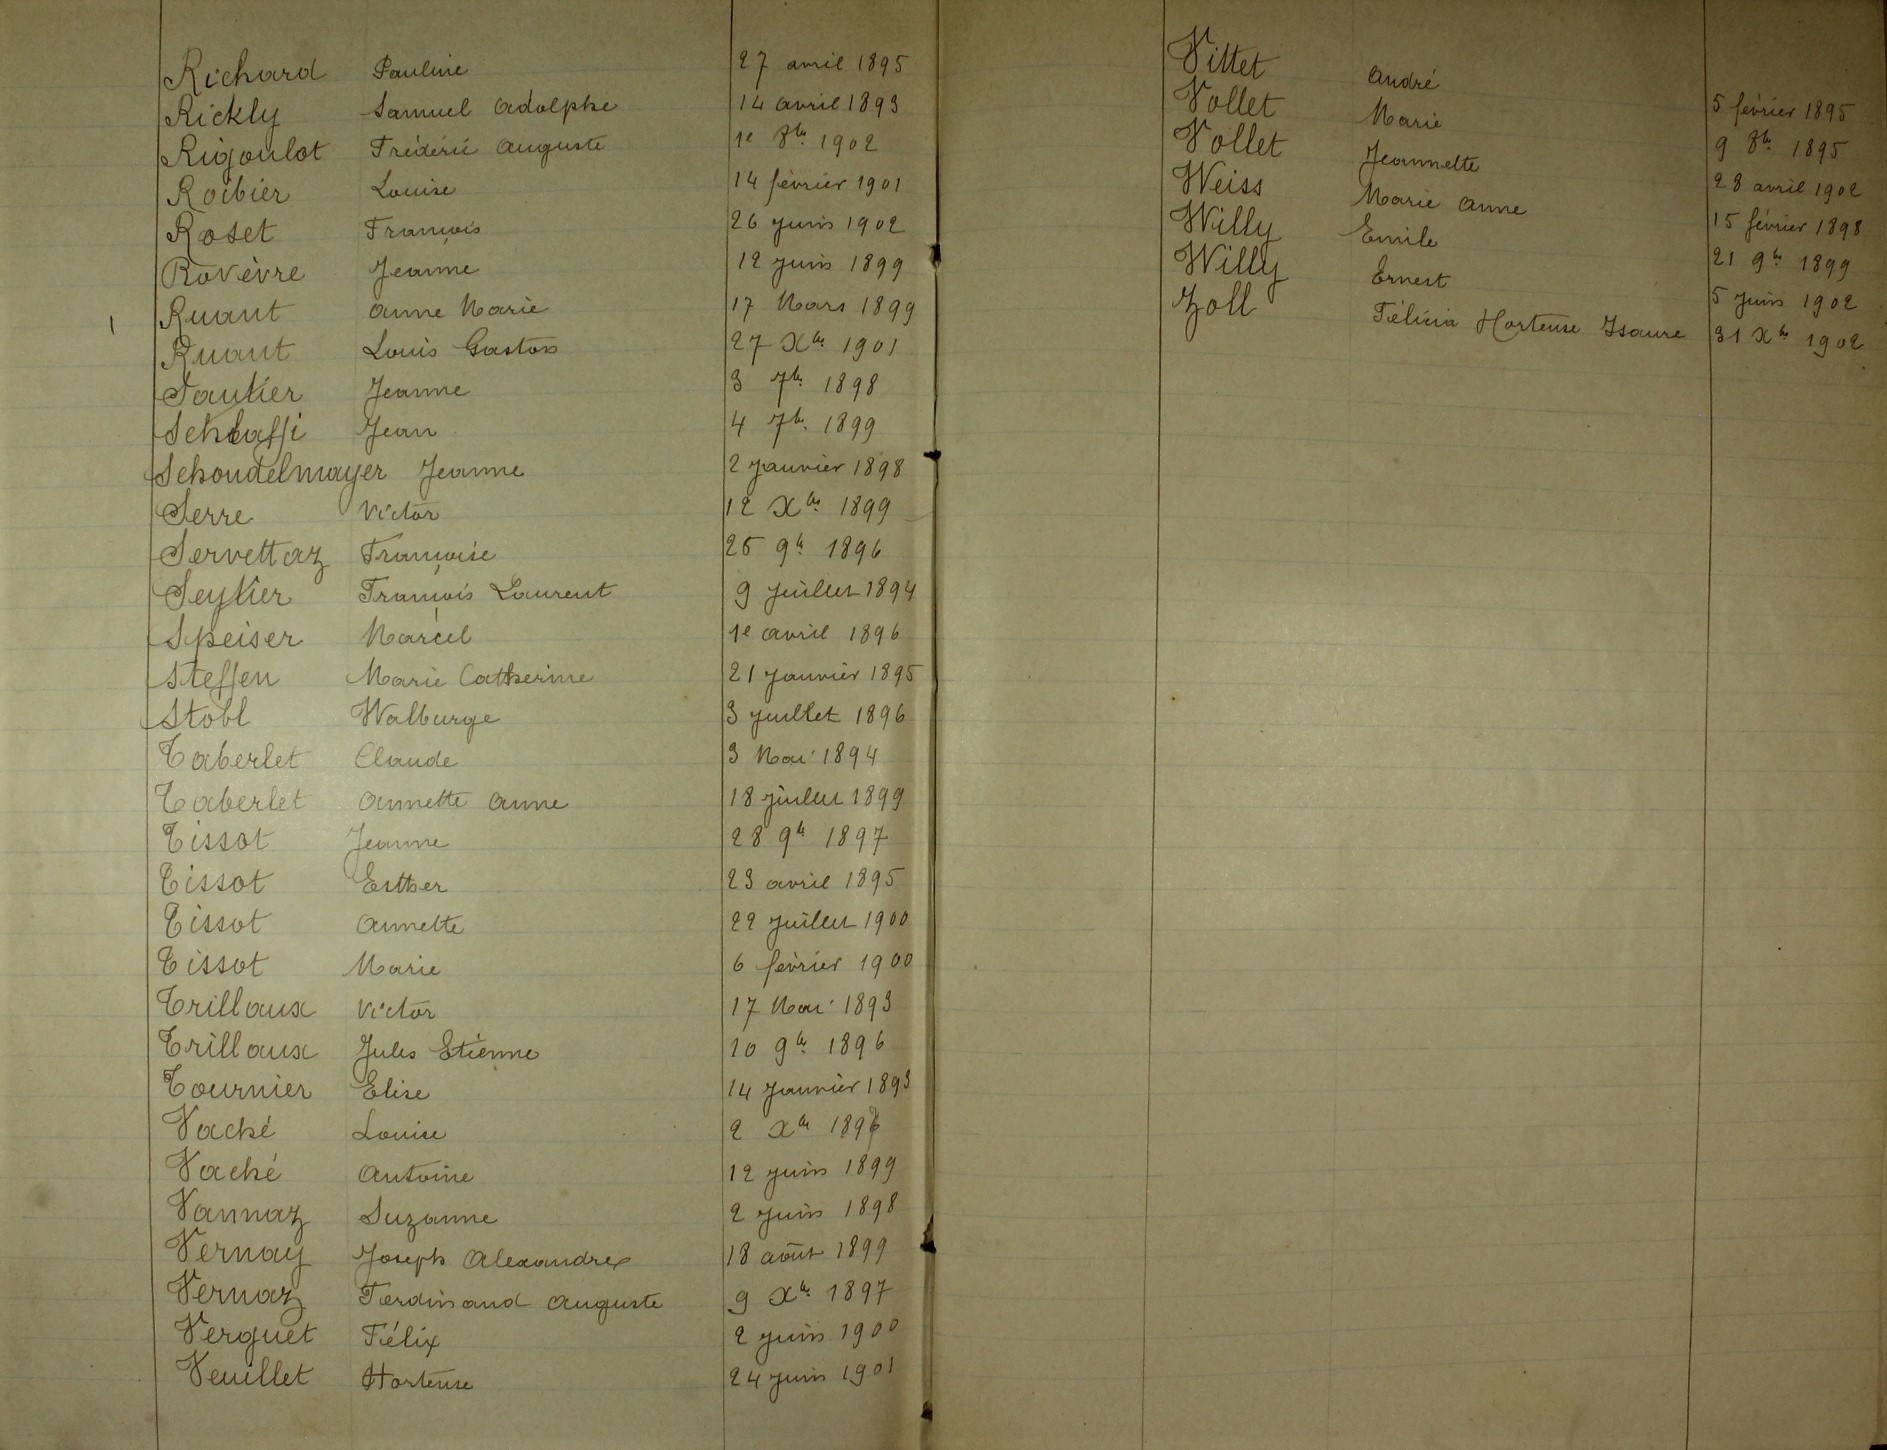 Richard Pauline 27 avril 1895
Rickly Samuel Adolphe 14 avril 1893
Rigoulot Frédéric Auguste 1e 8bre 1902
Roibier Louise 14 février 1901
Roset François 26 juin 1902
Rovèvre Jeanne 12 juin 1899
Ruant Anne Marie 17 Mars 1899
Ruant Louis Gaston 27 Xbre 1901
Sautier Jeanne 3 7bre 1898
Schlaffi Jean 4 7bre 1899
Schoudelmayer Jeanne 2 Janvier 1898
Serre Victor 12 Xbre 1899
Servettaz Françoise 25 9bre 1896
Seytier François Laurent 9 Juillet 1894
Speiser Marcel 1e avril 1896
Steffen Marie Catherine 21 Janvier 1895
Stobl Walburge 3 juillet 1896
Taberlet Claude 3 Mai 1894
Taberlet Annette Anne 18 juillet 1899
Tissot Jeanne 28 9bre 1897
Tissot Esther 23 avril 1895
Tissot Annette 22 Juillet 1900
Tissot Marie 6 février 1900
Trilloux Victor 17 Mai 1893
Trilloux Jules Etienne 10 9bre 1896
Tournier Elise 14 Janvier 1893
Vaché Louise 2 Xbre
Vaché Antoine 12 juin 1899
Vannaz Suzanne 2 juin 1898
Vernay Joseph Alexandre 18 août 1899
Vernaz Ferdinand Auguste 9 Xbre 1897
Verguet Félix 2 juin 1900
Veuillet Hortense 24 juin 1901
Vittet André 5 février 1895
Vollet Marie 9 8bre 1895
Vollet Jeannette 28 avril 1902
Weiss Marie Anne 15 février 1898
Willy Emile 21 9bre 1899
Willy Ernest 5 Juin 1902
Zoll Félicia Hortense Isaure 31 Xbre 1902